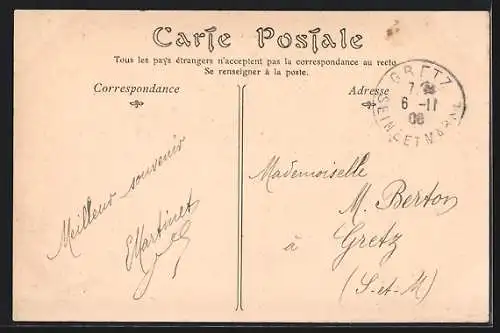 Carte Postale
Tous les pays étrangers n'acceptent pas la correspondance au recto
Se renseigner à la poste.
Correspondance
Adresse
GRETZ
6 -11
08
SEINE ET MARNE
Meilleur souvenir
EMartinet
Mademoiselle
M. Berton
à
Gretz
(S-et-M)